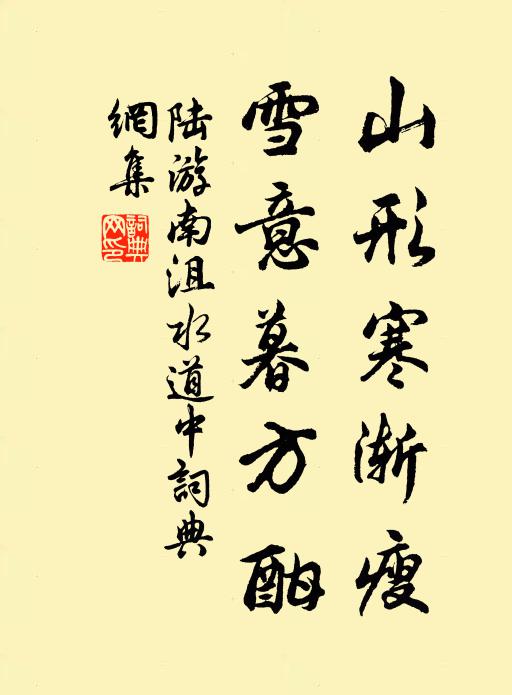 山形寒渐瘦
雪意暮方酣
陆游南沮水道中詞典
網集
詞典
网印